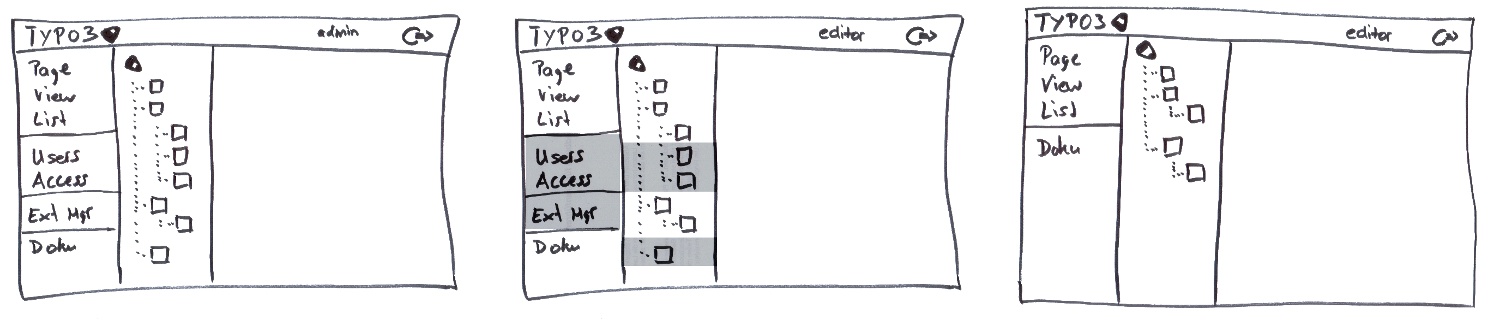 TYPO3 admin
Page
View
List
Users
Access
Ext Mgr
Doku
TYPO3 editor
Page
View
List
Users
Access
Ext Mgr
Doku
TYPO3 editor
Page
View
List
Doku